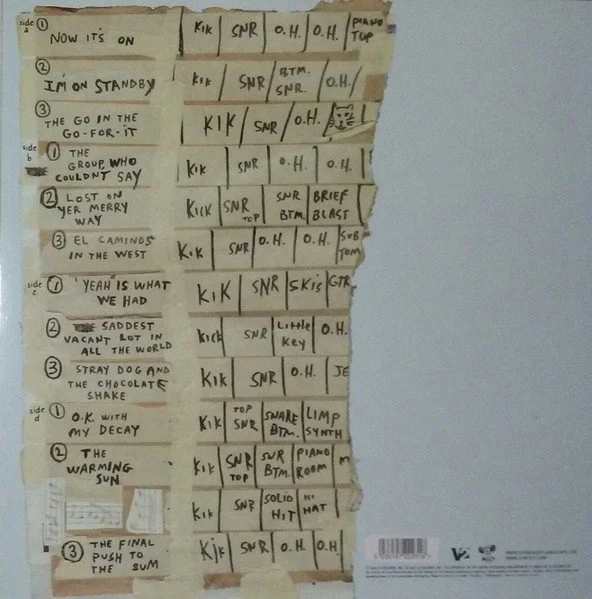 side a ① NOW IT'S ON KIK SNR O.H. O.H. PIANO TOP
② I'M ON STANDBY KIK SNR BTM. SNR. O.H.
③ THE GO IN THE GO-FOR-IT KIK SNR O.H.
side b ① THE GROUP WHO COULDN'T SAY KIK SNR O.H. O.H.
② LOST ON YER MERRY WAY KICK SNR TOP SNR BTM. BRIEF BLAST
③ EL CAMINOS IN THE WEST KIK SNR O.H. O.H. SUB TOM
side c ① "YEAH" IS WHAT WE HAD KIK SNR SKIS GTR
② SADDEST VACANT LOT IN ALL THE WORLD KICK SNR LITTLE KEY O.H.
③ STRAY DOG AND THE CHOCOLATE SHAKE KIK SNR O.H. JE
side d ① O.K. WITH MY DECAY KIK TOP SNR SNARE BTM. LIMP SYNTH
② THE WARMING SUN KIK SNR TOP SNR BTM. PIANO ROOM M
KIK SNR SOLID HIT HI HAT
③ THE FINAL PUSH TO THE SUM KIK SNR O.H. O.H.
V2